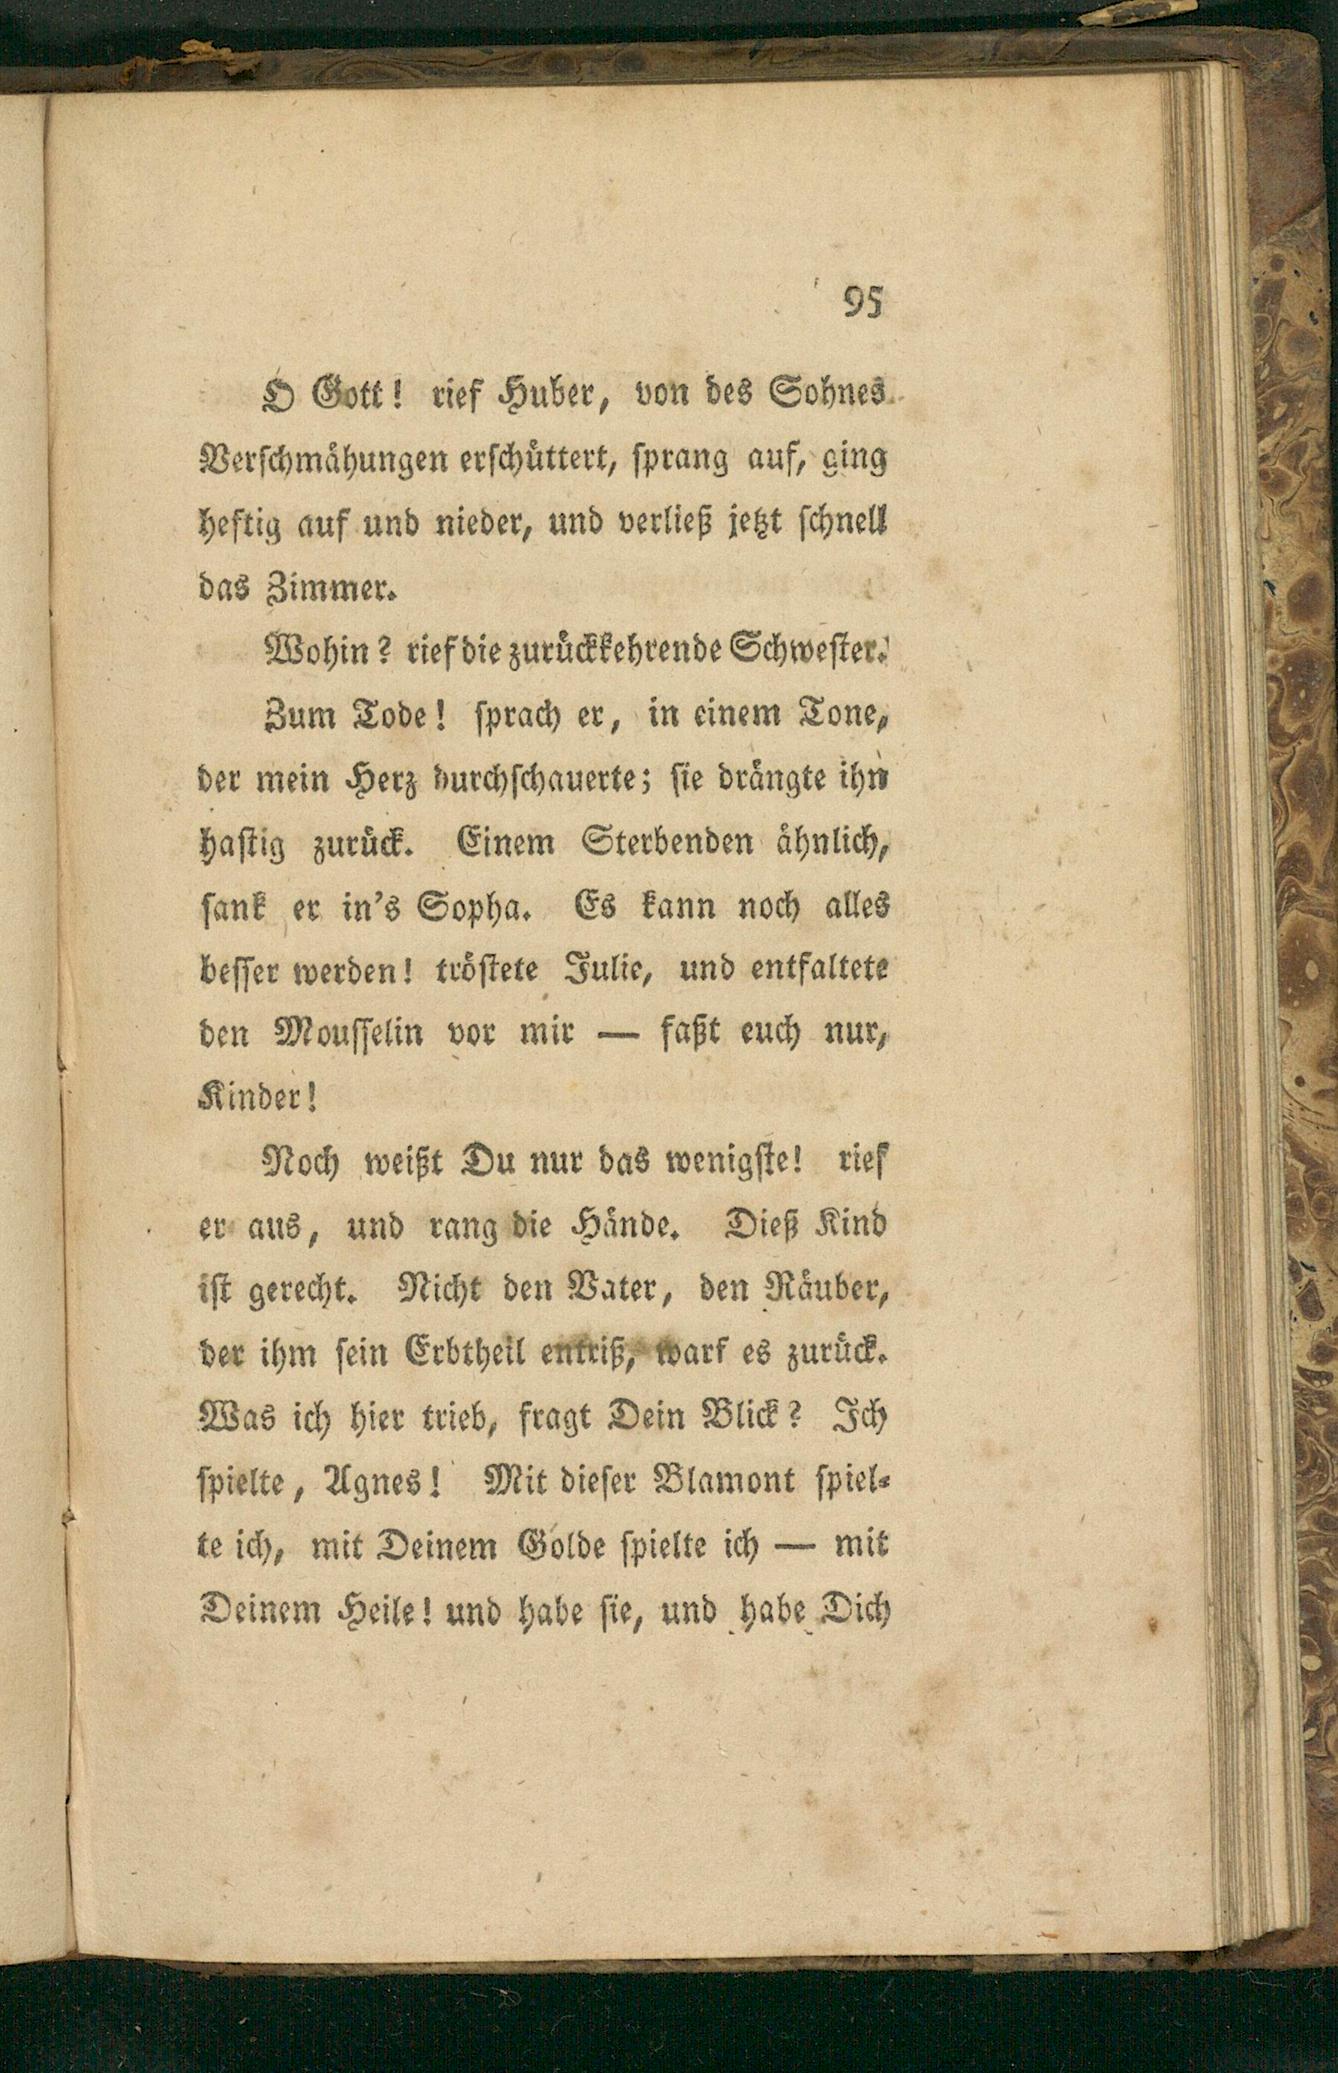 95
O Gott! rief Huber, von des Sohnes
Verschmähungen erschüttert, sprang auf, ging
heftig auf und nieder, und verließ jetzt schnell
das Zimmer.
Wohin? rief die zurückkehrende Schwester.
Zum Tode! sprach er, in einem Tone,
der mein Herz durchschauerte; sie drängte ihn
hastig zurück. Einem Sterbenden ähnlich,
sank er in's Sopha. Es kann noch alles
besser werden! tröstete Julie, und entfaltete
den Mousselin vor mir — faßt euch nur,
Kinder!
Noch weißt Du nur das wenigste! rief
er aus, und rang die Hände. Dieß Kind
ist gerecht. Nicht den Vater, den Räuber,
der ihm sein Erbtheil entriß, warf es zurück.
Was ich hier trieb, fragt Dein Blick? Ich
spielte, Agnes! Mit dieser Blamont spiel-
te ich, mit Deinem Golde spielte ich — mit
Deinem Heile! und habe sie, und habe Dich